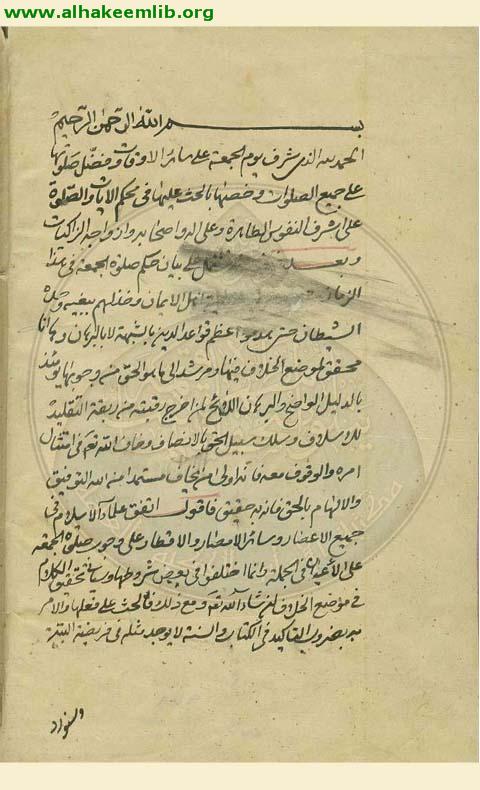 www.alhakeemlib.org
بسم الله الرحمن الرحيم
الحمد لله الذي شرف يوم الجمعة على سائر الاوقات وفضل صلوتها
على جميع الصلوات وخصها بالحث عليها في محكم الايات والصلوة
على اشرف النفوس الطاهرة وعلى اله واصحابه وازواجه الزاكيات
وبعد على بيان حكم صلوة الجمعة في هذا
الزمان اهل الايمان وخذلهم ببغيه وجنده
الشيطان حتى هدموا اعظم قواعد الدين بالشبهة لا بالبرهان وها انا
محقق لموضع الخلاف فيها ومرشد الى ما هو الحق من وجوبها يومئذ
بالدليل الواضح والبرهان اللائح لمن اخرج رقبته من ربقة التقليد
للاسلاف وسلك سبيل الحق بالانصاف وخاف الله تعم في امتثال
امره والوقوف معه فانه اولى من يخاف مستمدا من الله التوفيق
والالهام بالحق فانه به حقيق فاقول اتفق علماء الاسلام في
جميع الاعصار وسائر الامصار والاقطار على وجوب صلوة الجمعة
على الاعيان في الجملة وانما اختلفوا في بعض شروطها وسياتي تحقيق الكلام
في موضع الخلاف انشاء الله تعم ومع ذلك فالحث على فعلها والامر
به بضروب التاكيد في الكتاب والسنة لا يوجد مثله في فريضة البتة